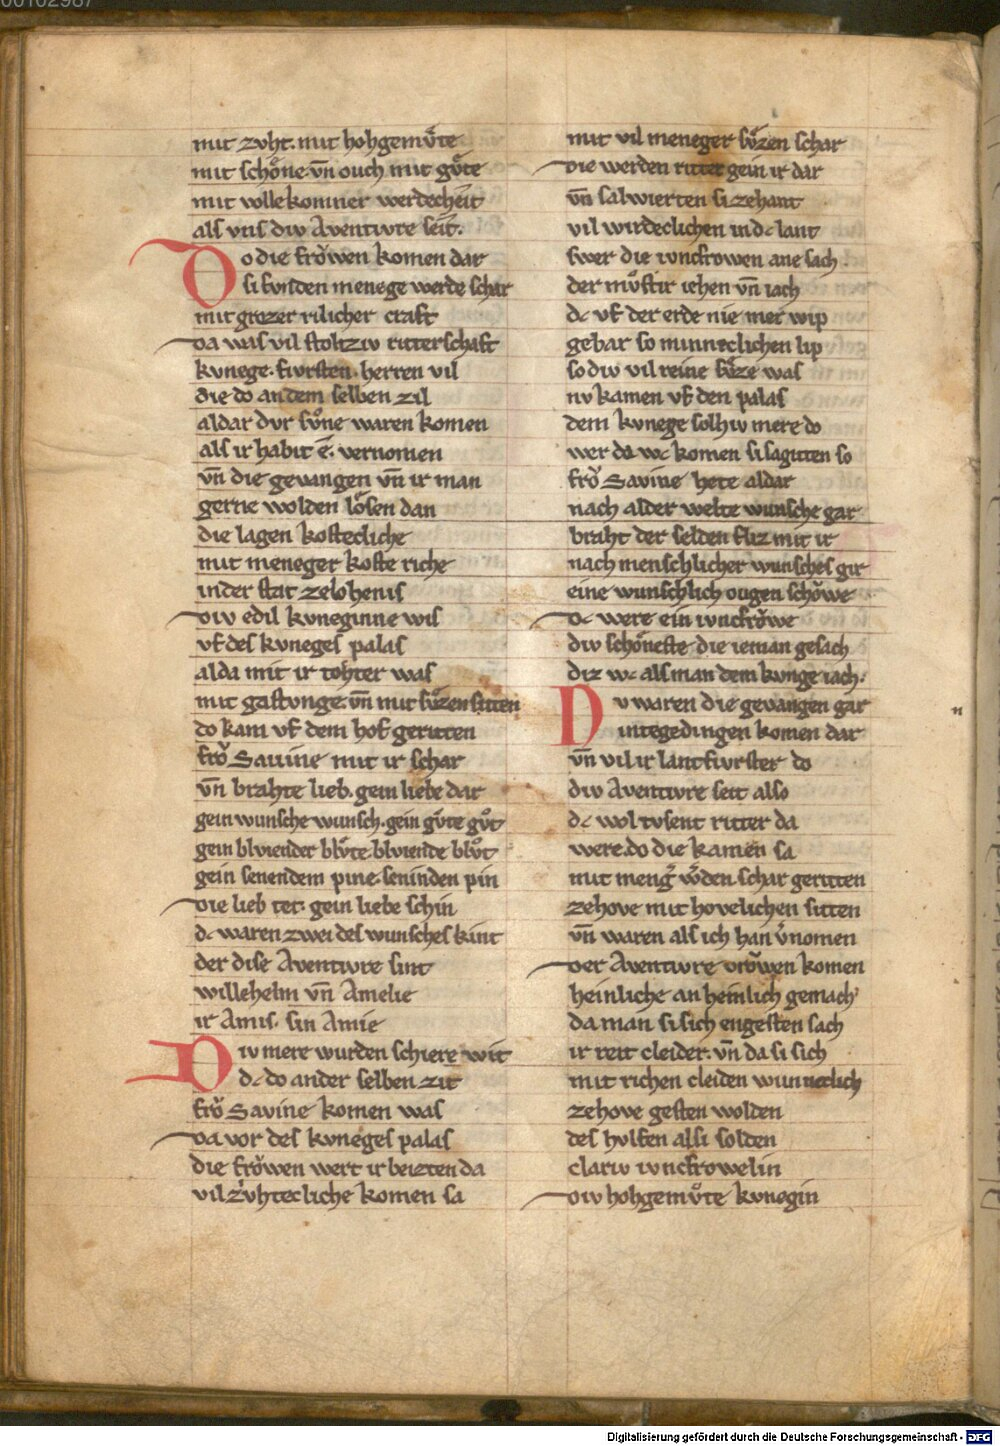 mit zvht. mit hohgemv̊te
mit schoͤne vn̄ ouch mit gv̊te
mit vollekomner werdecheit
als vns div Aventivre seit.
Do die froͮwen komen dar
si fvnden menege werde schar
mit grozer rilicher craft
da was vil stoltziv ritterschaft
kvnege. fivrsten. herren vil
die do an dem selben zil
aldar dvr sv̊ne waren komen
als ir habit e. vernomen
vn̄ die gevangen vn̄ ir man
gerne wolden loͤsen dan
die lagen kostecliche
mit meneger koste riche
in der stat zelohenis
div edil kvneginne wis
vf des kvneges palas
alda mit ir tohter was
mit gastvnge. vn̄ mit sv̊zen sitten
do kam vf dem hof geritten
froͮ Savine mit ir schar
vn̄ brahte lieb. gein liebe dar
gein wunsche wunsch. gein gv̊te gv̊t
gein blviender blv̊te. blviende blv̊t
gein senendem pine. seninden pin
die lieb tet. gein liebe schin
dc waren zwei des wunsches kint
der dise Aventivre sint
willehelm vn̄ Amelie
ir Amis. sin Amie
Div mere wurden schiere wit
dc do ander selben zit
froͮ Savine komen was
da vor des kvneges palas
die froͮwen wert ir beizten da
vil zvhtecliche komen sa
mit vil meneger sv̊zen schar
die werden ritter gein ir dar
vn̄ salwierten si zehant
vil wirdeclichen in dc lant
swer die ivncfrowen ane sach
der mv̊st ir iehen vn̄ iach
dc vf der erde nie mer wip
gebar so minneclichen lip
so div vil reine sv̊ze was
nv kamen vf den palas
dem kvnege solhiv mere do
wer da wc komen si sagitten so
froͮ Savine hete aldar
nach alder welte wunsche gar
braht der selden fliz mit ir
nach menschlicher wunsches gir
eine wunschlich ougen schoͮwe
dc were ein ivncfroͮwe
div schoͤneste die ieman gesach
diz wc als man dem kvnge iach.
Nv waren die gevangen gar
inte gedingen komen dar
vn̄ vil ir lantfivrster do
div Aventivre seit also
dc wol tvsent ritter da
were. do die kamen sa
mit meng̾ w̾den schar geritten
zehove mit hovelichen sitten
vn̄ waren als ich han v̾nomen
der Aventivre vroͮwen komen
heinliche an heinlich gemach
da man si sich engesten sach
ir reit cleider. vn̄ da si sich
mit richen cleiden wunneclich
zehove gesten wolden
des hvlfen alsi solden
clariv ivncfrowelin
div hohgemv̊te kvnegin